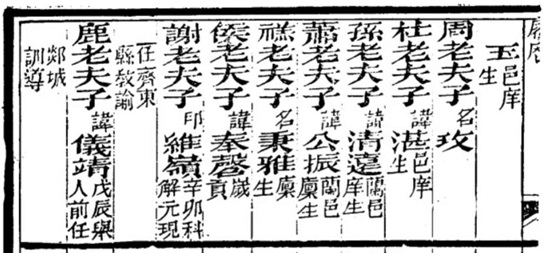 玉邑庠生
周老夫子名玫
杜老夫子諱湛邑庠生
孫老夫子諱清遠蘭邑庠生
蕭老夫子諱公振蘭邑廩生
禚老夫子名秉雅廩生
侯老夫子諱奉磬歲貢
謝老夫子印維嶺辛卯科解元現
任齊東縣教諭
鹿老夫子諱儀靖戊辰舉人前任
郯城訓導